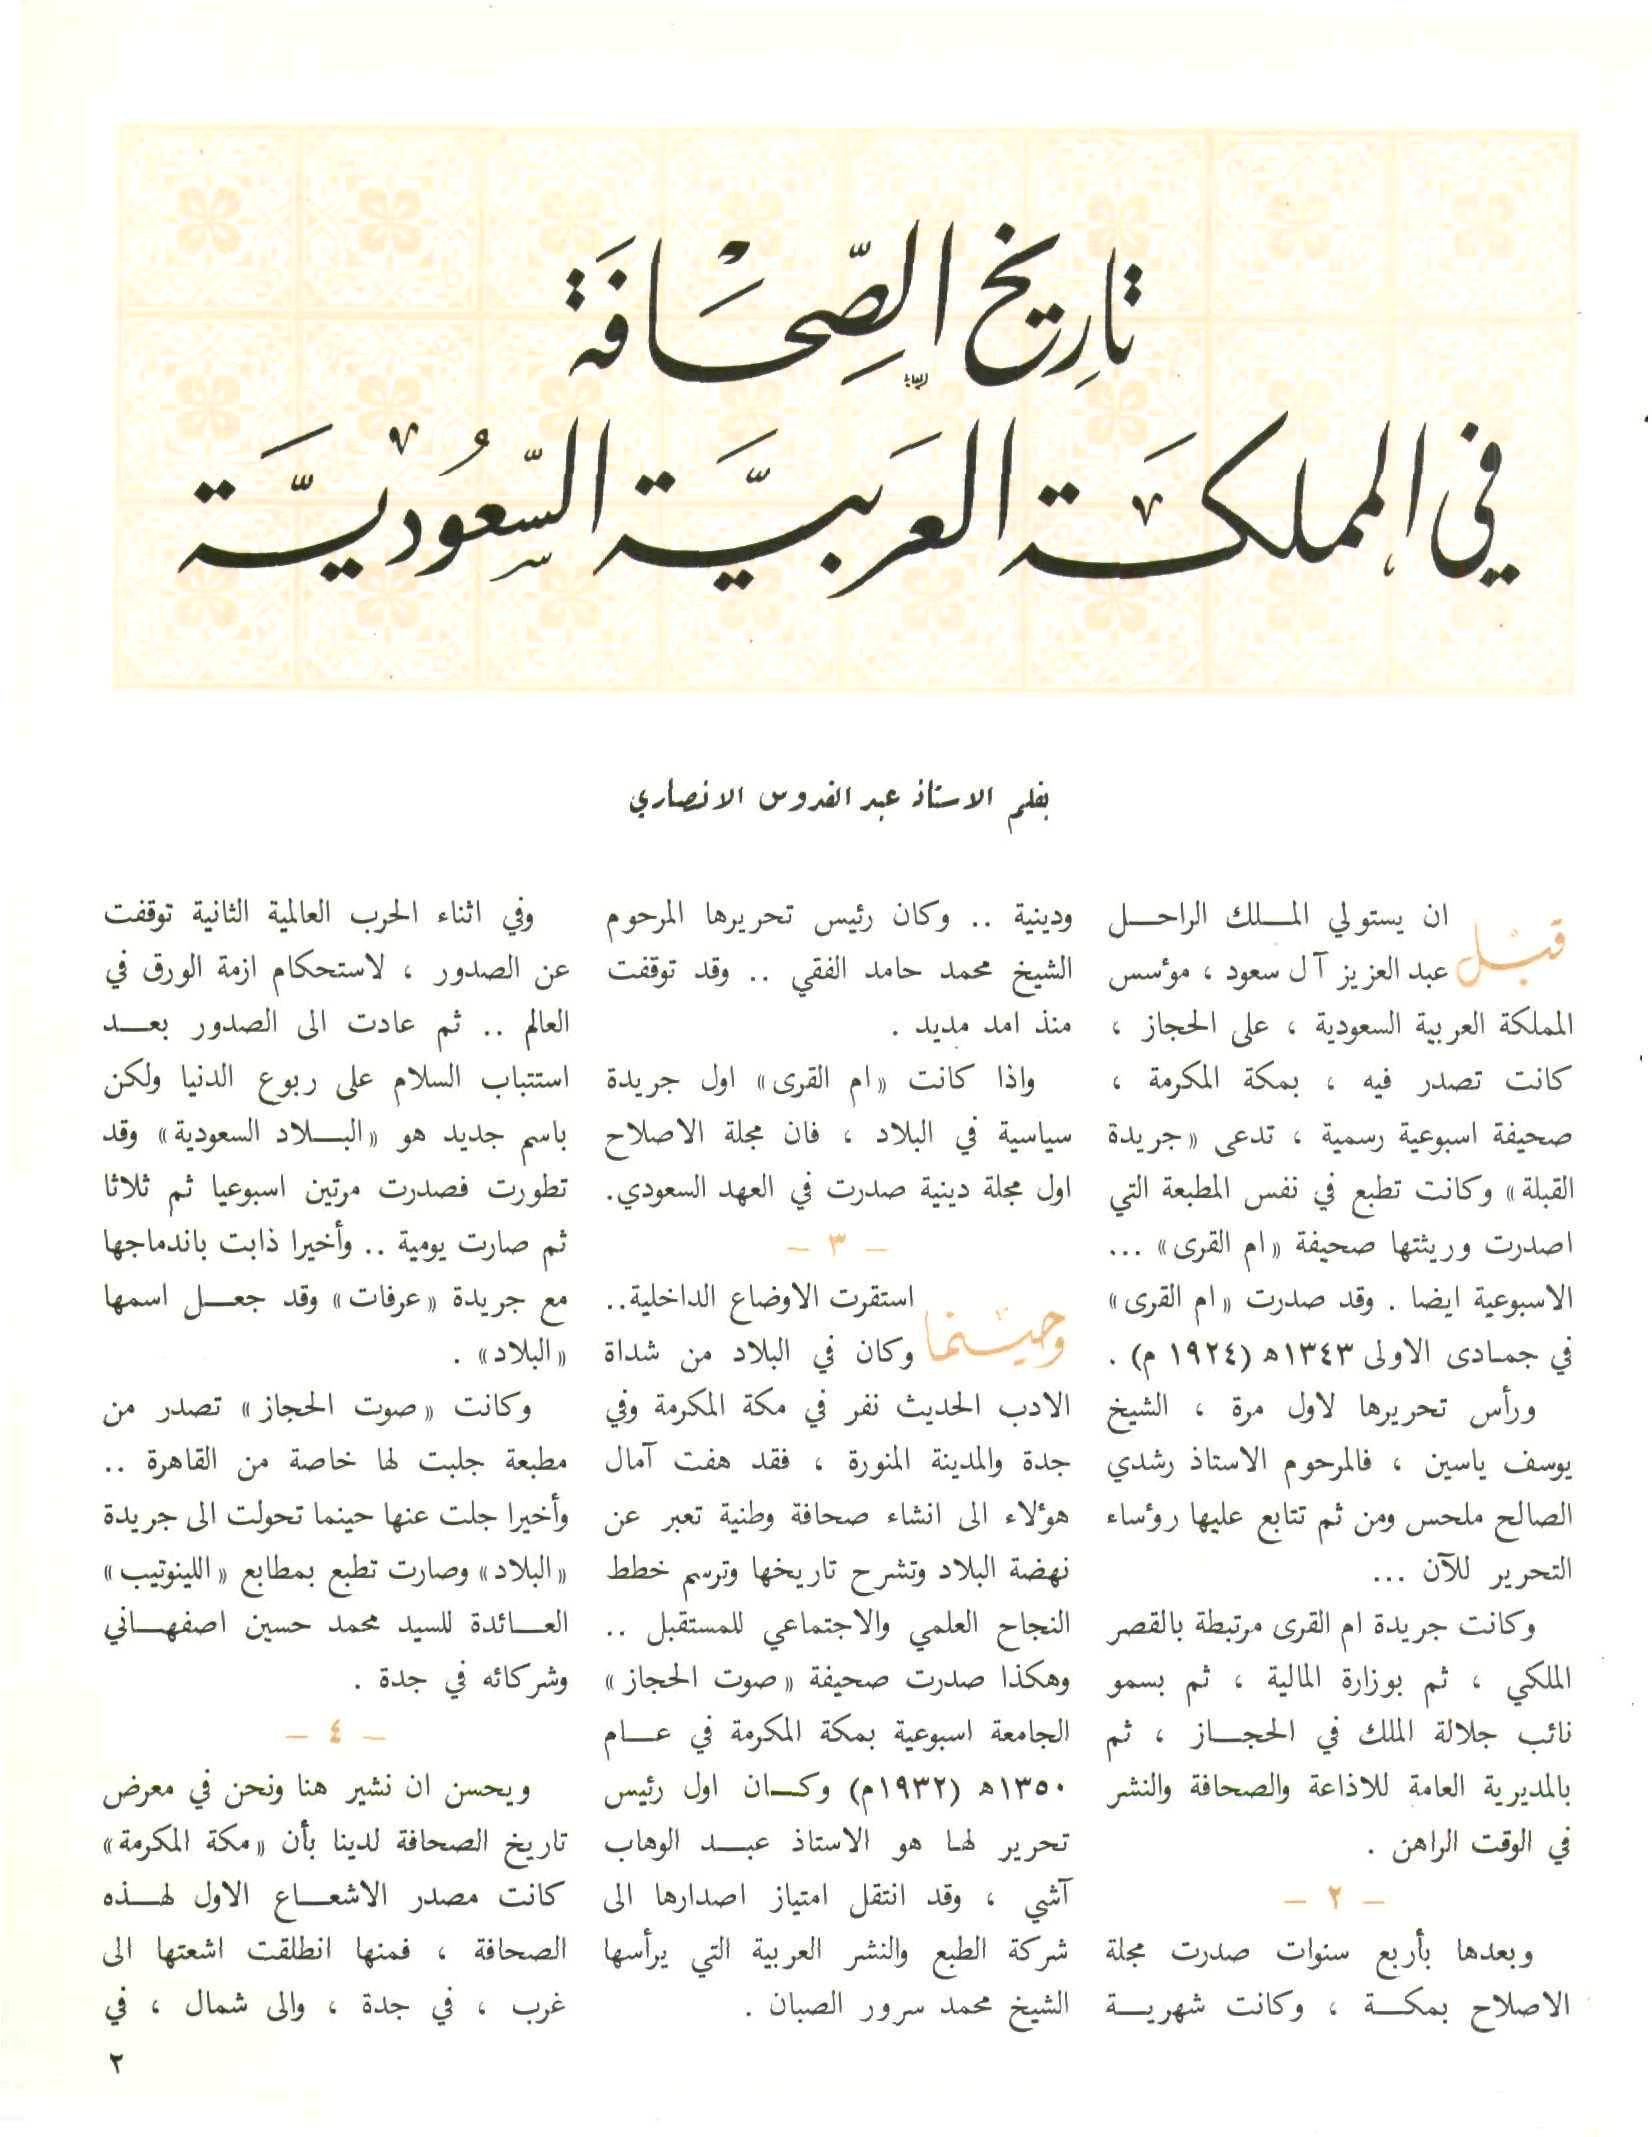 تاريخ الصحافة
في المملكة العربية السعودية
بقلم الاستاذ عبد القدوس الانصاري
قبل ان يستولي المـلك الراحـل
عبد العزيز آل سعود ، مؤسس
المملكة العربية السعودية ، على الحجاز ،
كانت تصدر فيه ، بمكة المكرمة ،
صحيفة اسبوعية رسمية ، تدعى «جريدة
القبلة» وكانت تطبع في نفس المطبعة التي
اصدرت وريثتها صحيفة «ام القرى» ...
الاسبوعية ايضا . وقد صدرت «ام القرى»
في جمادى الاولى ١٣٤٣ه (١٩٢٤ م) .
ورأس تحريرها لاول مرة ، الشيخ
يوسف ياسين ، فالمرحوم الاستاذ رشدي
الصالح ملحس ومن ثم تتابع عليها رؤساء
التحرير للآن ...
وكانت جريدة ام القرى مرتبطة بالقصر
الملكي ، ثم بوزارة المالية ، ثم بسمو
نائب جلالة الملك في الحجـاز ، ثم
بالمديرية العامة للاذاعة والصحافة والنشر
في الوقت الراهن .
– ٢ –
وبعدها بأربع سنوات صدرت مجلة
الاصلاح بمكـة ، وكانت شهريـة
ودينية .. وكان رئيس تحريرها المرحوم
الشيخ محمد حامد الفقي .. وقد توقفت
منذ امد مديد .
واذا كانت «ام القرى» اول جريدة
سياسية في البلاد ، فان مجلة الاصلاح
اول مجلة دينية صدرت في العهد السعودي.
– ٣ –
وحينما استقرت الاوضاع الداخلية..
وكان في البلاد من شداة
الادب الحديث نفر في مكة المكرمة وفي
جدة والمدينة المنورة ، فقد هفت آمال
هؤلاء الى انشاء صحافة وطنية تعبر عن
نهضة البلاد وتشرح تاريخها وترسم خطط
النجاح العلمي والاجتماعي للمستقبل ..
وهكذا صدرت صحيفة «صوت الحجاز»
الجامعة اسبوعية بمكة المكرمة في عـام
١٣٥٠ه (١٩٣٢م) وكـان اول رئيس
تحرير لها هو الاستاذ عبـد الوهاب
آشي ، وقد انتقل امتياز اصدارها الى
شركة الطبع والنشر العربية التي يرأسها
الشيخ محمد سرور الصبان .
وفي اثناء الحرب العالمية الثانية توقفت
عن الصدور ، لاستحكام ازمة الورق في
العالم .. ثم عادت الى الصدور بعـد
استتباب السلام على ربوع الدنيا ولكن
باسم جديد هو «البـلاد السعودية» وقد
تطورت فصدرت مرتين اسبوعيا ثم ثلاثا
ثم صارت يومية .. وأخيرا ذابت باندماجها
مع جريدة «عرفات» وقد جعـل اسمها
«البلاد» .
وكانت «صوت الحجاز» تصدر من
مطبعة جلبت لها خاصة من القاهرة ..
وأخيرا جلت عنها حينما تحولت الى جريدة
«البلاد» وصارت تطبع بمطابع «اللينوتيب»
العـائدة للسيد محمد حسين اصفهـاني
وشركائه في جدة .
– ٤ –
ويحسن ان نشير هنا ونحن في معرض
تاريخ الصحافة لدينا بأن «مكة المكرمة»
كانت مصدر الاشعـاع الاول لهـذه
الصحافة ، فمنها انطلقت اشعتها الى
غرب ، في جدة ، والى شمال ، في
٢